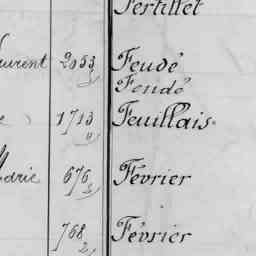 Fertillet
aurent 2053 Feudé
3 Fendé
e 1713 Feuillais
11
drie 676 Février
2
768 Février
2